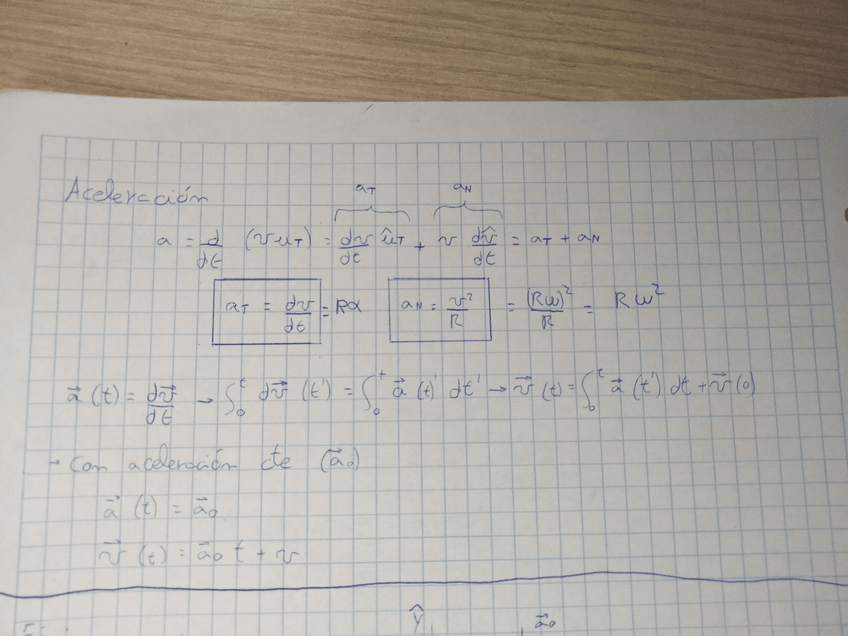 Aceleración
a_T a_N
a = d/dt (v u_T) = dv/dt û_T + v dv̂/dt = a_T + a_N
a_T = dv/dt = Rα a_N = v²/R = (Rω)²/R = Rω²
a⃗ (t) = dv⃗/dt → ∫₀ᵗ dv⃗ (t') = ∫₀ᵗ a⃗ (t)' dt' → v⃗ (t) = ∫₀ᵗ a⃗ (t') dt + v⃗ (0)
→ Con aceleración cte (a⃗₀)
a⃗ (t) = a⃗₀
v⃗ (t) = a⃗₀ t + v
ŷ a⃗₀